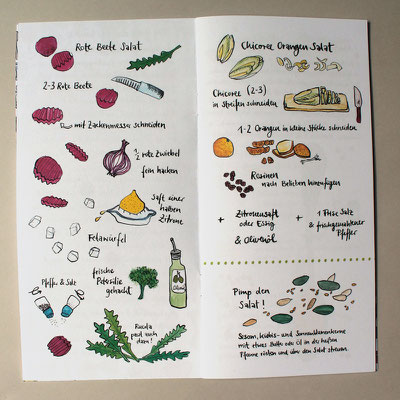 Rote Beete Salat
2-3 Rote Beete
mit Zackenmesser schneiden
1/2 rote Zwiebel
fein hacken
Saft einer
halben
Zitrone
Fetawürfel
Pfeffer & Salz
frische
Petersilie
gehackt
Rucola
passt auch
dazu!
Chicoree Orangen Salat
Chicoree (2-3)
in Streifen schneiden
1-2 Orangen in kleine Stücke schneiden
Rosinen
nach Belieben hinzufügen
+ Zitronensaft
oder Essig
& Olivenöl
+ 1 Prise Salz
& frischgemahlener
Pfeffer
Pimp den
Salat!
Sesam, Kürbis- und Sonnenblumenkerne
mit etwas Butter oder Öl in der heißen
Pfanne rösten und über den Salat streuen.